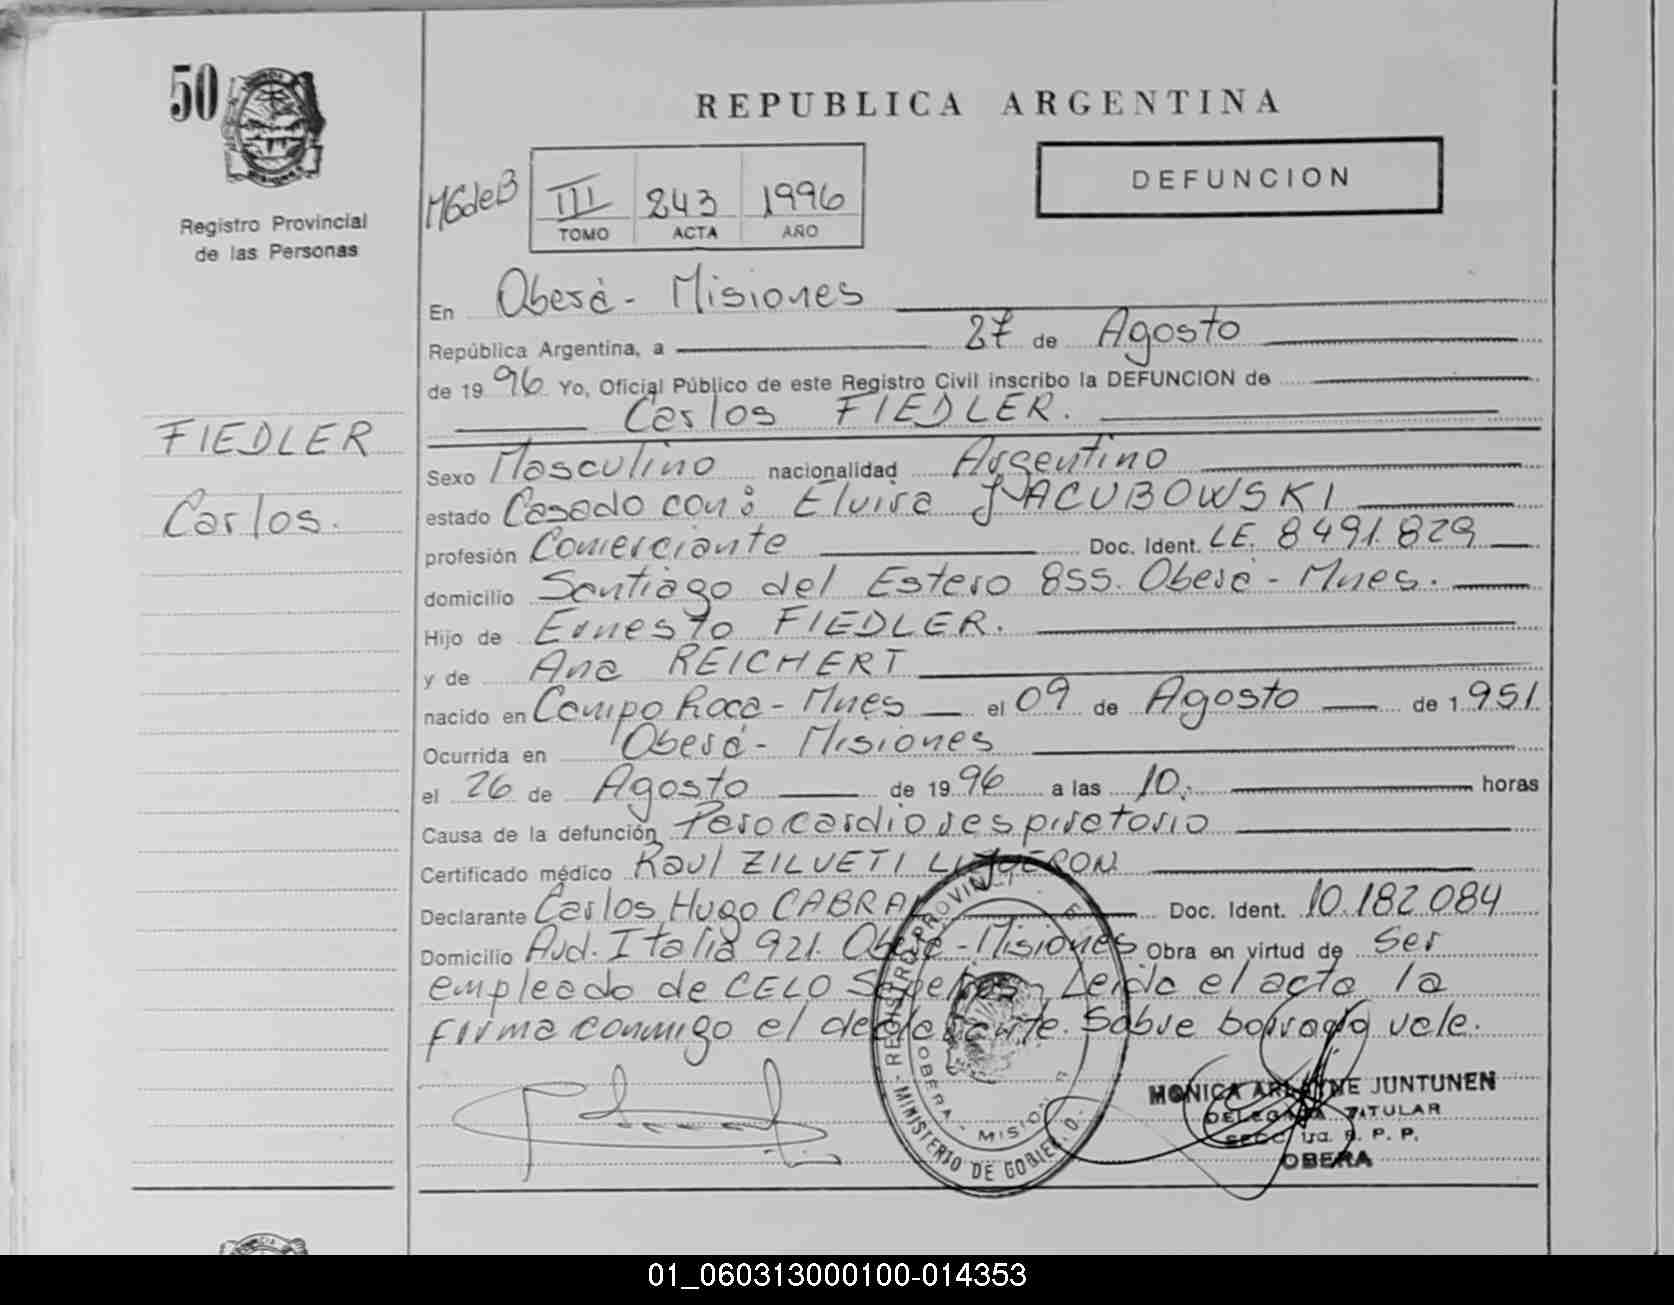 50
REPUBLICA ARGENTINA
DEFUNCION
MGdeB III 243 1996
TOMO ACTA AÑO
Registro Provincial
de las Personas
En Oberá - Misiones
República Argentina, a 27 de Agosto
de 1996 Yo, Oficial Público de este Registro Civil inscribo la DEFUNCION de
Carlos FIEDLER.
FIEDLER
Carlos.
Sexo Masculino nacionalidad Argentino
estado Casado con: Elvira JACUBOWSKI
profesión Comerciante Doc. Ident. LE. 8491.829
domicilio Santiago del Estero 855. Oberá - Mnes.
Hijo de Ernesto FIEDLER.
y de Ana REICHERT
nacido en Campo Roca - Mnes el 09 de Agosto de 1.951.
Ocurrida en Oberá - Misiones
el 26 de Agosto de 1996 a las 10. horas
Causa de la defunción Paro cardiorespiratorio
Certificado médico Raul ZILVETI
Declarante Carlos Hugo CABRAL Doc. Ident. 10.182.084
Domicilio Avd. Italia 921. Oberá - Misiones Obra en virtud de Ser
empleado de CELO Sepelios. Leida el acta la
firma conmigo el declarante. Sobre borrado vale.
REGISTRO PROVINCIAL
OBERA - MISIONES
MINISTERIO DE GOBIERNO
MONICA ARLAYNE JUNTUNEN
DELEGADA TITULAR
SECC. 1ra. R. P. P.
OBERA
01_060313000100-014353